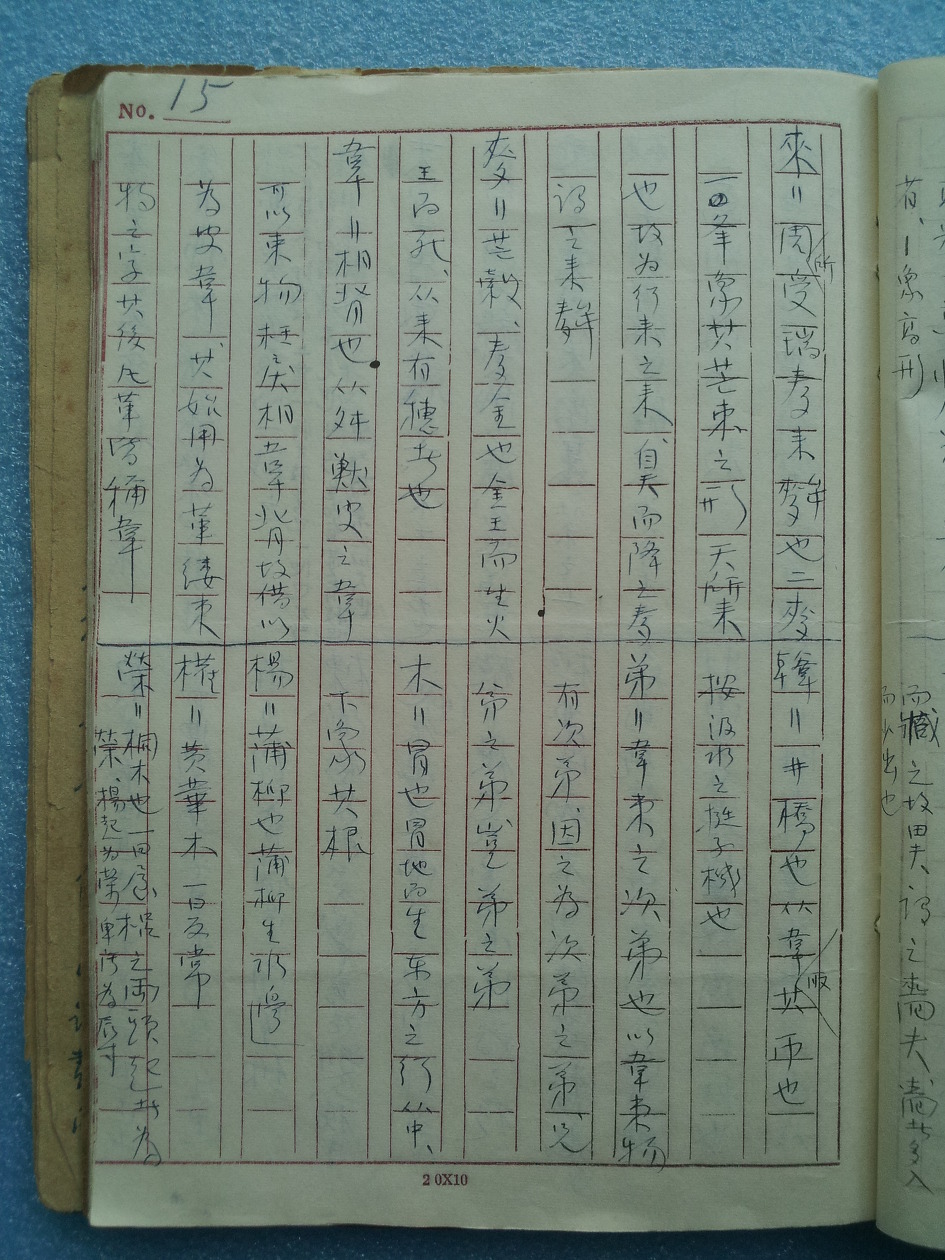 No. 15
來〃周所受瑞麥來麰也二麥
一夆象其芒朿之形天所來
也故為行來之來、自天而降之麥
謂之來麰
麥〃芒穀、麥金也金王而生火
王而死、从來有穗者也
韋〃相背也从舛獸皮之韋
可以束物枉戾相韋背故借以
為皮韋、其始用為革縷束
物之字其後凡革皆稱韋
韓〃井橋也从韋取其帀也
按汲水之機也
弟〃韋束之次弟也以韋束物
有次弟、因之為次弟之弟、兄
弟之弟豈弟之弟
木〃冒也冒地而生東方之行从屮、
下象其根
楊〃蒲柳也蒲柳生水邊
權〃黃華木一曰反常
榮〃桐木也一曰屋梠之兩頭起者為
榮、楊起為榮卑污為辱
20X10
象高形
而臧之故田夫謂之嗇夫嗇者多入
而少出也